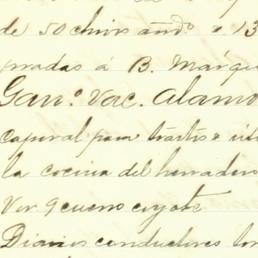 de 50 chivs and.º a 13
pradas á B. Márqu
Gan.º Vac. Alamo
caporal para trastos e úti
la cocina del herradero
Vor 9 cueros coyote
Diarios conductores ton